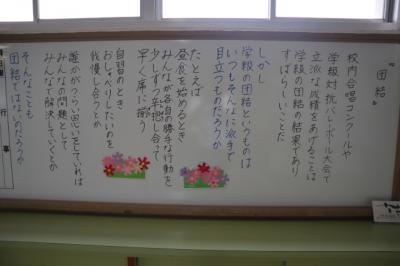 〝団結〟
校内合唱コンクールや
学級対抗バレーボール大会で
立派な成績をあげることは
学級の団結の結果であり
すばらしいことだ
しかし
学級の団結というものは
いつもそんなに派手で
目立つものだろうか
たとえば
昼食を始めるとき
みんなが各自の勝手な行動を
少しずつ辛抱し合って
早く席に揃う
自習のとき、
おしゃべりしたいのを
我慢し合うとか
誰かがつらい思いをしていれば
みんなの問題として
みんなで解決していくとか
そんなことも
団結ではないのだろうか
行事